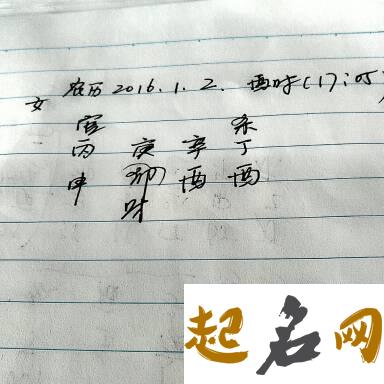 女 农历2016.1.2. 酉时(17:05)
官 杀
丙 庚 辛 丁
申 卯 酉 酉
财
起名网